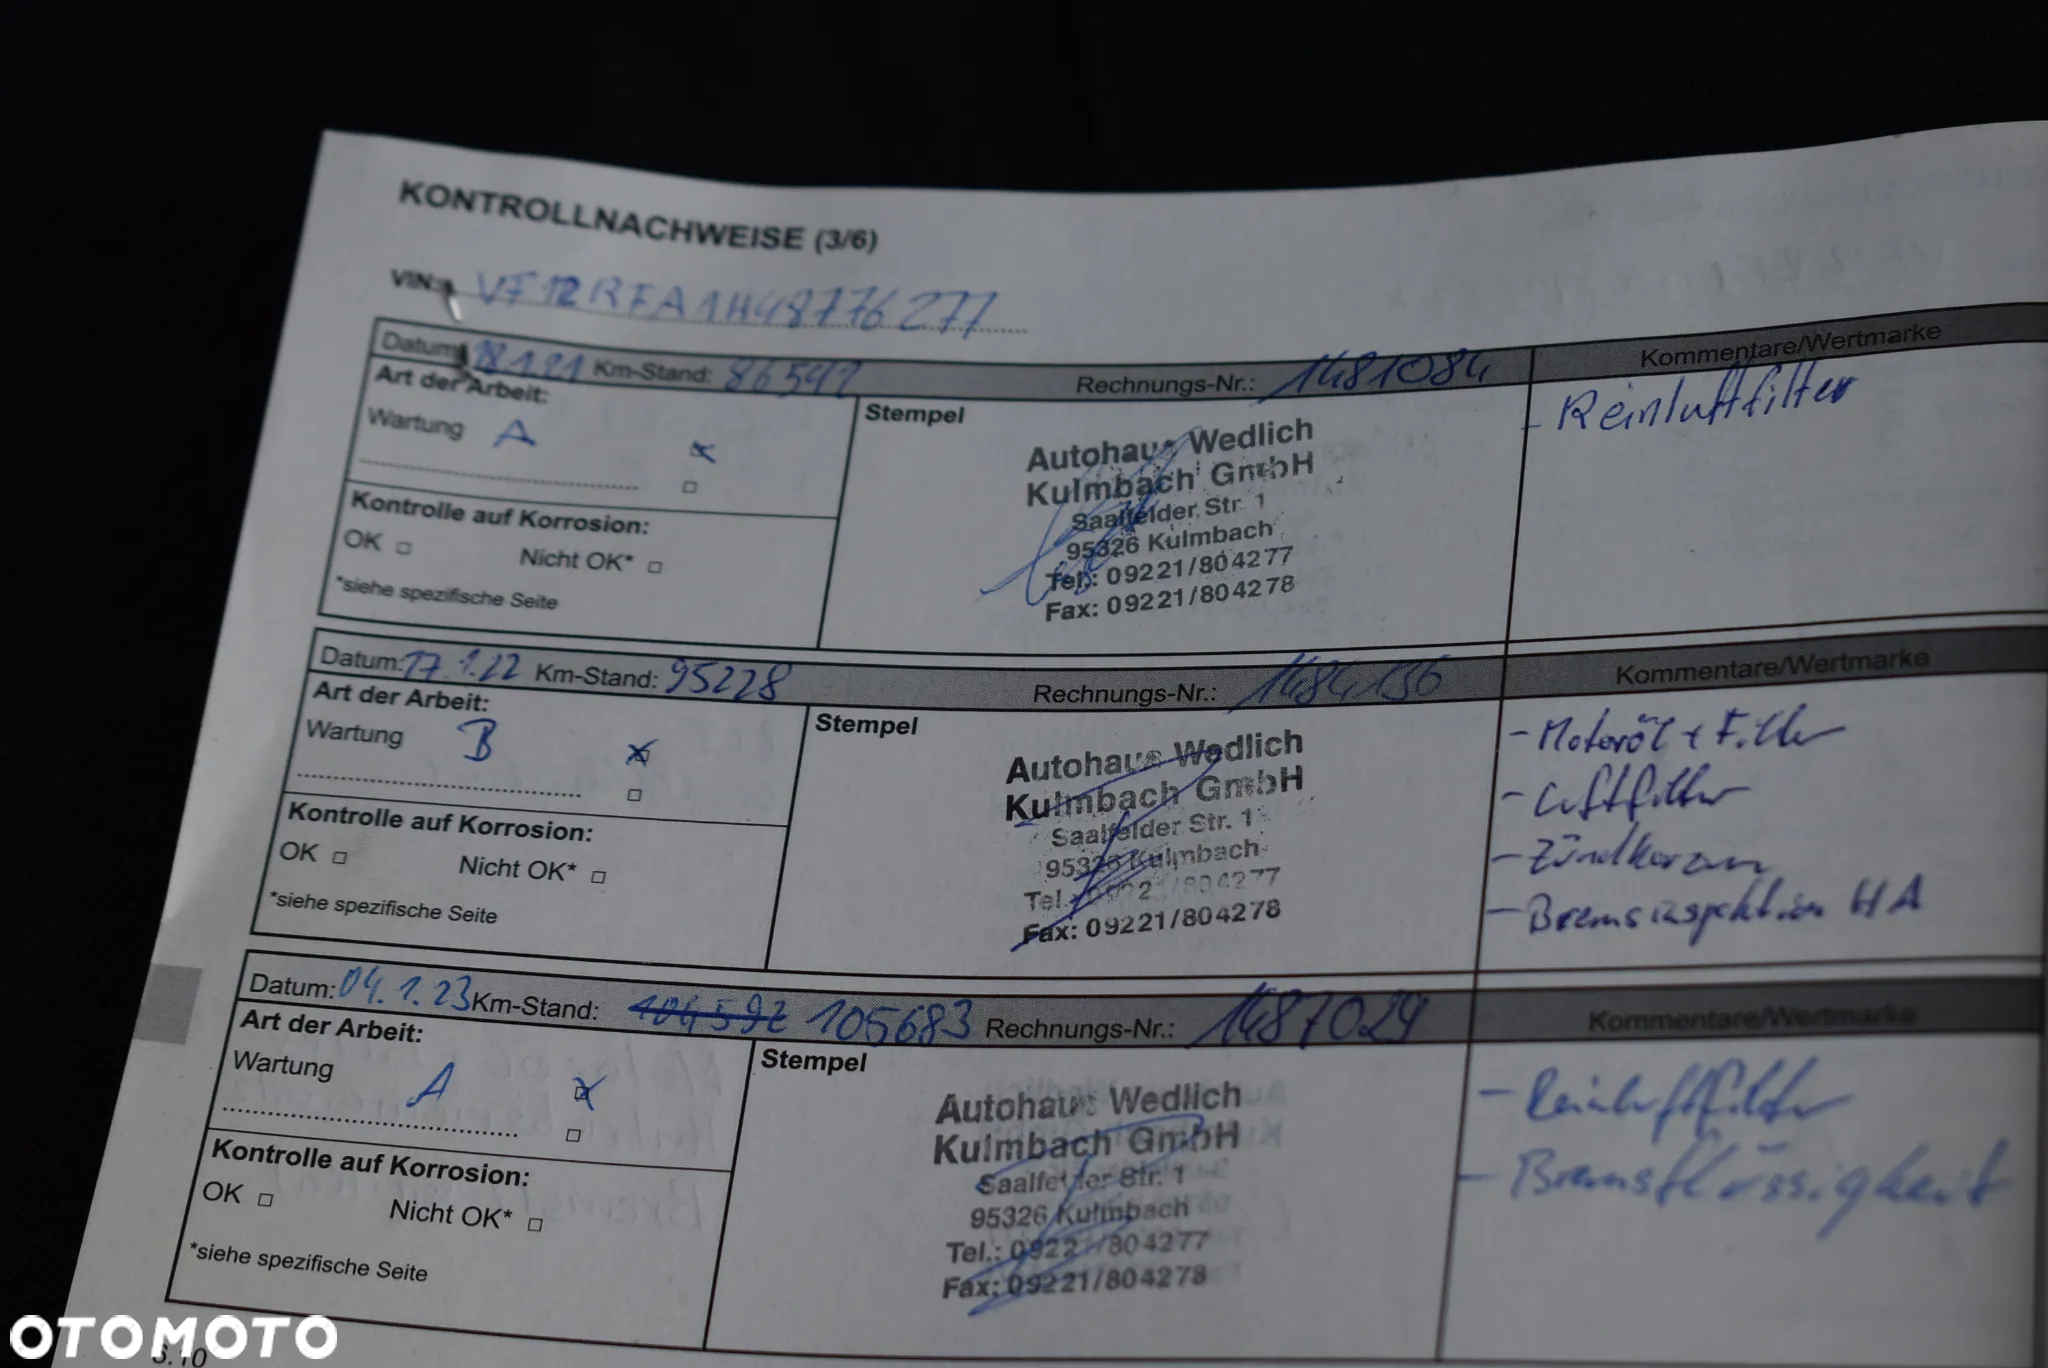 KONTROLLNACHWEISE (3/6)
VIN: VF12RFA1H48776277
Datum: 18.1.21 Km-Stand: 86542 Rechnungs-Nr.: 1481084 Kommentare/Wertmarke
Art der Arbeit:
Wartung A
Stempel
Autohaus Wedlich
Kulmbach GmbH
Saalfelder Str. 1
95326 Kulmbach
Tel.: 09221/804277
Fax: 09221/804278
- Reinluftfilter
Kontrolle auf Korrosion:
OK Nicht OK*
*siehe spezifische Seite
Datum: 17.1.22 Km-Stand: 95228 Rechnungs-Nr.: 1484136 Kommentare/Wertmarke
Art der Arbeit:
Wartung B
Stempel
Autohaus Wedlich
Kulmbach GmbH
Saalfelder Str. 1
95326 Kulmbach
Tel.: 09221/804277
Fax: 09221/804278
- Motoröl + Filter
- Luftfilter
- Zündkerzen
- Bremsinspektion HA
Kontrolle auf Korrosion:
OK Nicht OK*
*siehe spezifische Seite
Datum: 04.1.23 Km-Stand: 104592 105683 Rechnungs-Nr.: 1487029 Kommentare/Wertmarke
Art der Arbeit:
Wartung A
Stempel
Autohaus Wedlich
Kulmbach GmbH
Saalfelder Str. 1
95326 Kulmbach
Tel.: 09221/804277
Fax: 09221/804278
- Reinluftfilter
- Bremsflüssigkeit
Kontrolle auf Korrosion:
OK Nicht OK*
*siehe spezifische Seite
OTOMOTO
S.10